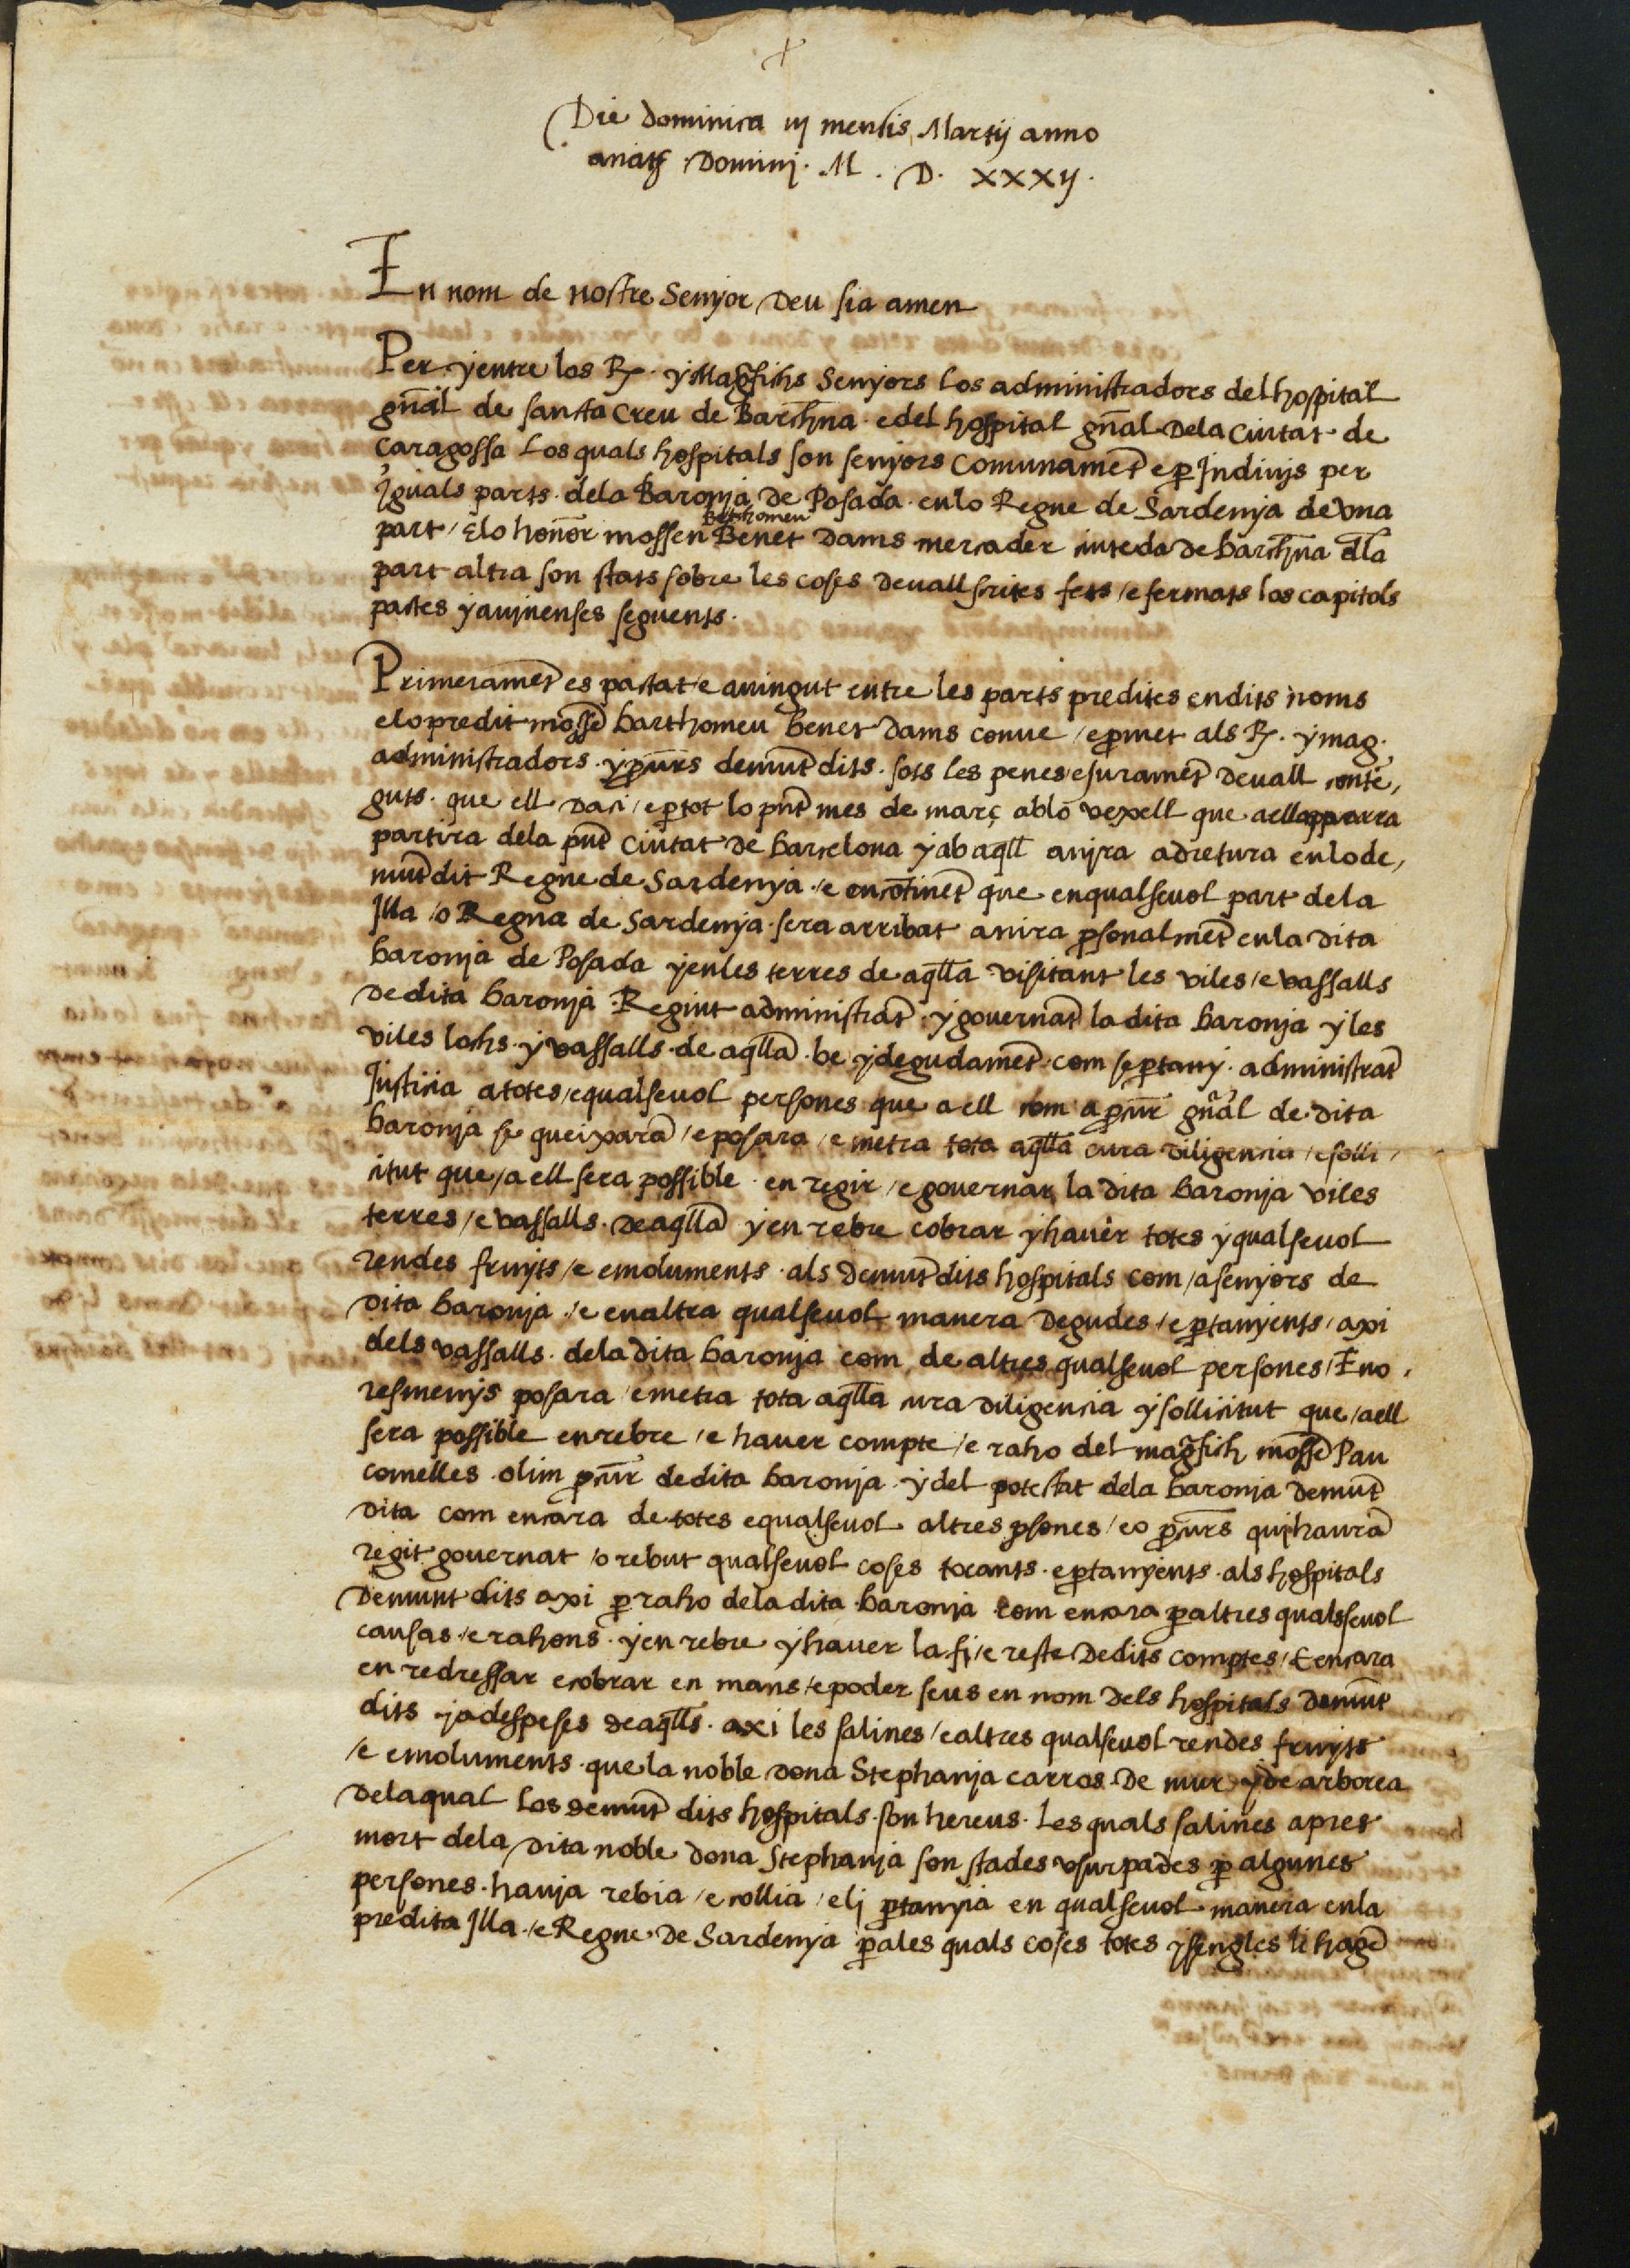 Die dominica iij mensis Martij anno
a natte Dominj. M. D. xxxij.
En nom de nostre Senyor Deu sia amen
Per y entre los Rx. y Magfichs Senyors los administradors del hospital
gnãl de santa Creu de Barchna. e del hospital gnãl dela Ciutat de
Caragossa Los quals hospitals son senyors Comunamẽt e p Indivis per
Iguals parts. dela Baronja de Posada. en lo Regne de Sardenya de vna
part / E lo honor mossen Barthomeu Benet Dams mercader ciuteda de barchña dla
part altra son stats sobre les coses deuall scrites fets / e fermats los capitols
pactes y auinenses seguents.
Primeramẽt es pactat e auingut entre les parts predites en dits noms
e lo predit mossẽ barthomeu benet Dams conue / e pmet als Rx. y mag.
administradors. y pũrs demũt dits. sots les penes e juramẽt deuall conte,
guts. que ell daci / e p tot lo pñt mes de març ab lo vexell que a ell apparra
partira dela pñt Ciutat de barcelona y ab aqll anjra adretura en lo de,
mũt dit Regne de Sardenya. e encõtinẽt que en qualseuol part dela
Illa / o Regna de Sardenya. sera arribat anira psonalmẽt en la dita
baronja de Posada y en les terres de aqlla visitant les viles / e vassalls
de dita baronja. Regint administrãt. y gouernãt la dita baronja y les
viles lochs. y vassalls. de aqlla. be y degudamẽt. com se ptany. administrãt
Justicia a totes / e qualseuol persones que a ell com a pũr gñal de dita
baronja se queixarã / e posara / e metra tota aqlla cura diligencia / e solli,
citut que / a ell sera possible. en regir / e gouernar la dita baronja viles
terres / e vassalls. de aqlla y en rebre cobrar y hauer totes y qualseuol
rendes fruyts / e emoluments. als demũt dits hospitals com / a senyors de
dita baronja. / e en altra qualseuol manera degudes / e ptanyents / axi
dels vassalls. dela dita baronja com de altres qualseuol persones / E no,
resmenys posara / e metra tota aqlla cura diligencia y sollicitut que / a ell
sera possible en rebre / e hauer compte / e raho del magfich mossẽ Pau
comelles. olim pũr de dita baronja. y del potestat dela baronja demũt
dita com encara de totes e qualseuol altres psones / eo pũrs qui haurã
regit gouernat / o rebut qualseuol coses tocants. e ptanyents. als hospitals
demunt dits axi p raho dela dita baronja com encora p altres qualsseuol
causas / e rahons. y en rebre y hauer la fi / e reste de dits comptes / E encara
en redressar e cobrar en mans / e poder seus en nom dels hospitals demũt
dits y a despeses de aqlls. axi les salines / e altres qualseuol rendes fruyts
/ e emoluments. que la noble dona Stephanja carros. de mur y de arborea
dela qual los demũt dits hospitals. son hereus. Les quals salines apres
mort dela dita noble dona Stephanja son stades vsurpades p algunes
persones. hauja rebia / e collia / e lj ptanyia en qualseuol manera en la
predita Illa. / e Regne. de Sardenya p a les quals coses totes y sengles li hagẽ